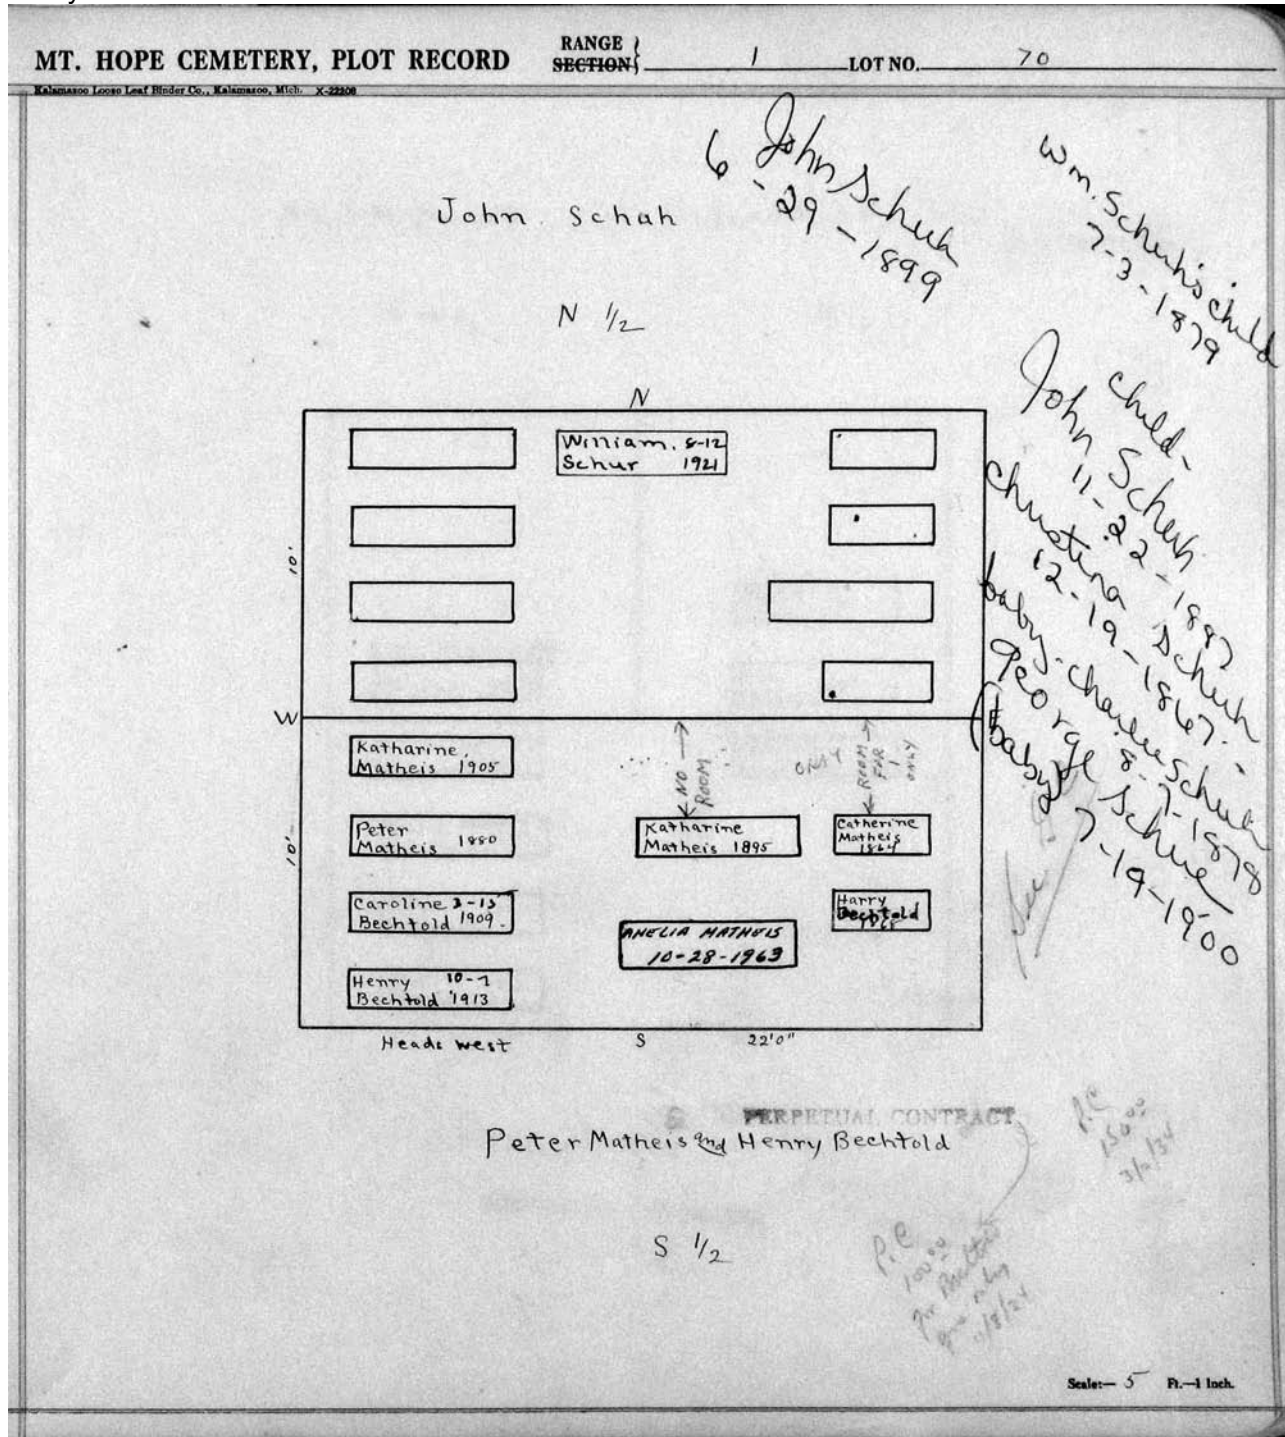 MT. HOPE CEMETERY, PLOT RECORD
RANGE
SECTION
1
LOT NO.
70
Kalamazoo Loose Leaf Binder Co., Kalamazoo, Mich. X-22208
John Schuh
6-29-1899
Wm. Schuh's child
7-3-1879
John Schah
N 1/2
child-
John Schuh
11-22-1887
Christina Schuh
12-19-1867
baby-Charles Schuh
8-7-1878
George Schue
(baby) 7-19-1900
See
N
William. 8-12
Schur 1921
10'
W
E
Katharine
Matheis 1905
NO
ROOM
ONLY
ROOM
FOR
1
ONLY
10'
Peter
Matheis 1880
Katharine
Matheis 1895
Catherine
Matheis
1864
Caroline 3-15
Bechtold 1909
Harry
Bechtold
AMELIA MATHEIS
10-28-1963
Henry 10-7
Bechtold 1913
Heads west
S
22'0"
PERPETUAL CONTRACT
Peter Matheis and Henry Bechtold
P.C
150 00
S 1/2
P.C
100 00
Scale:— 5 Ft.—1 Inch.